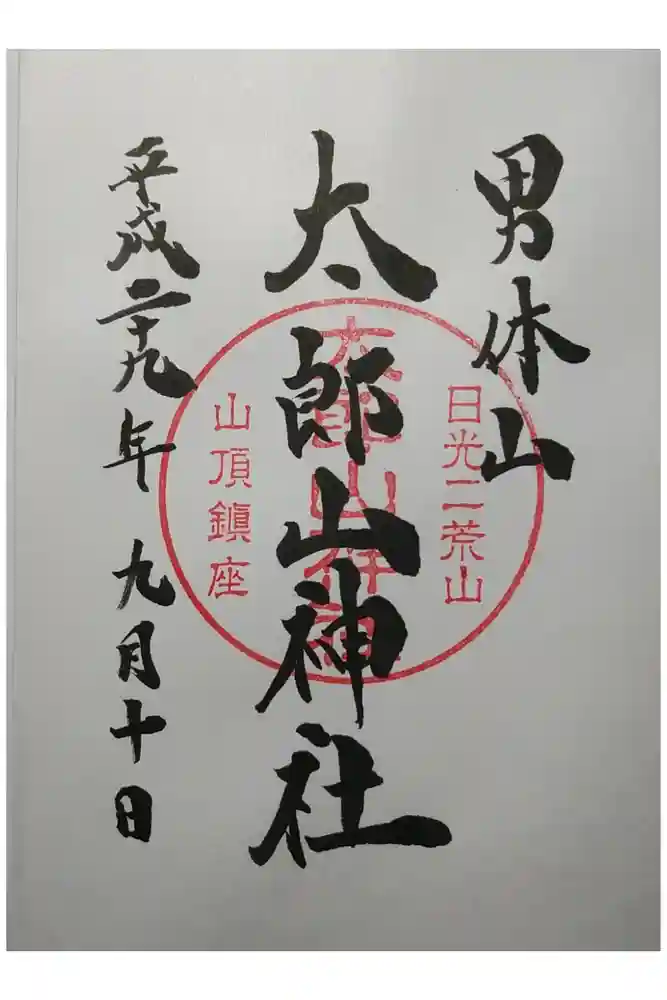 男体山
日光二荒山
太郎山神社
山頂鎮座
平成二十九年 九月十日